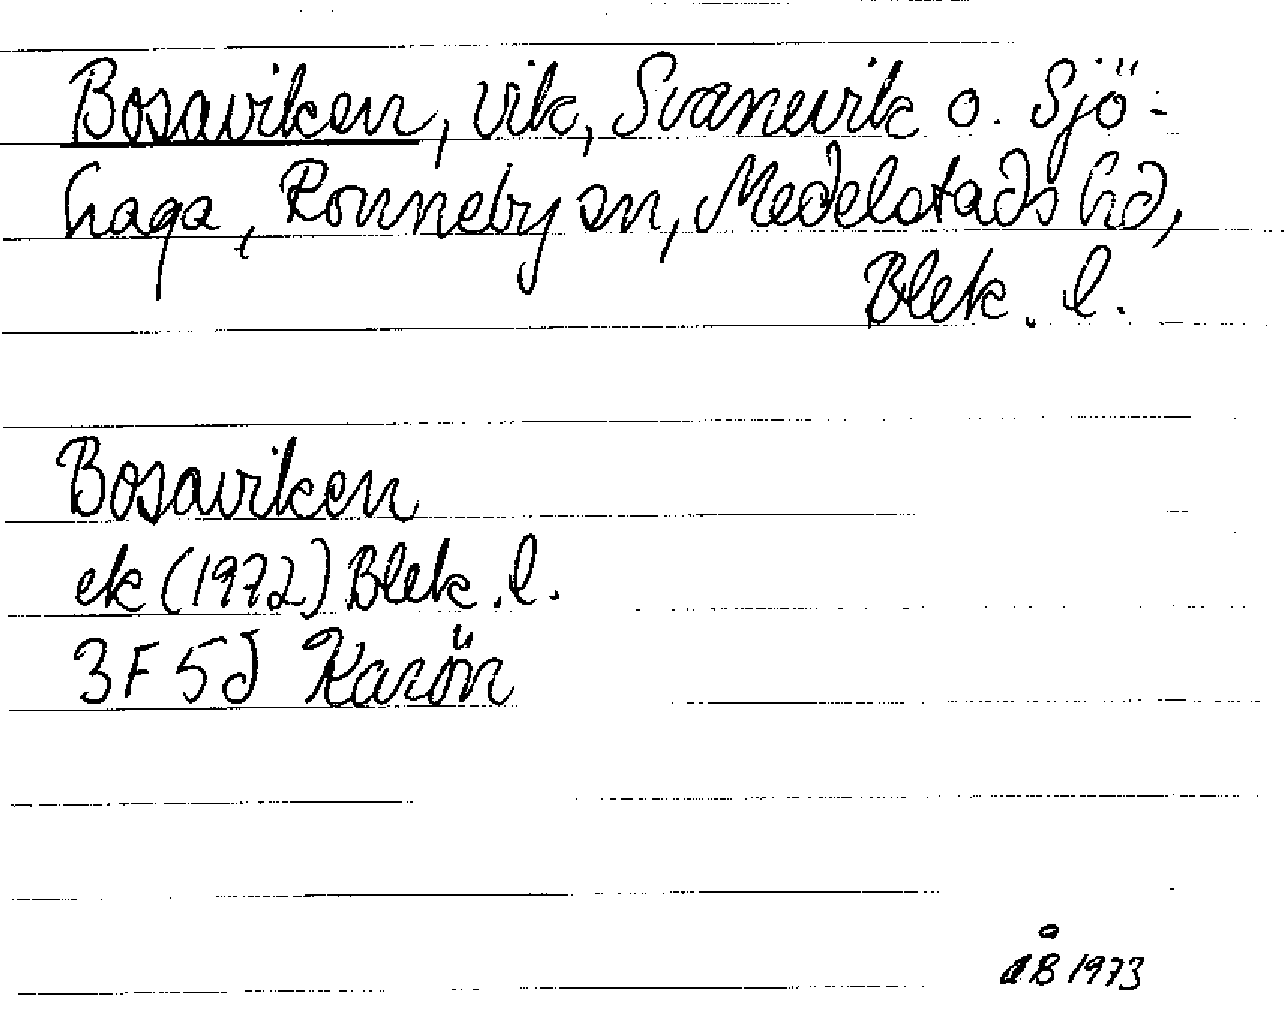 Bosaviken, vik, Svanevik o. Sjö-
haga, Ronneby sn, Medelstads hd,
Blek. l.
Bosaviken
ek (1972) Blek. l.
3F 5d Karön
ÅB 1973